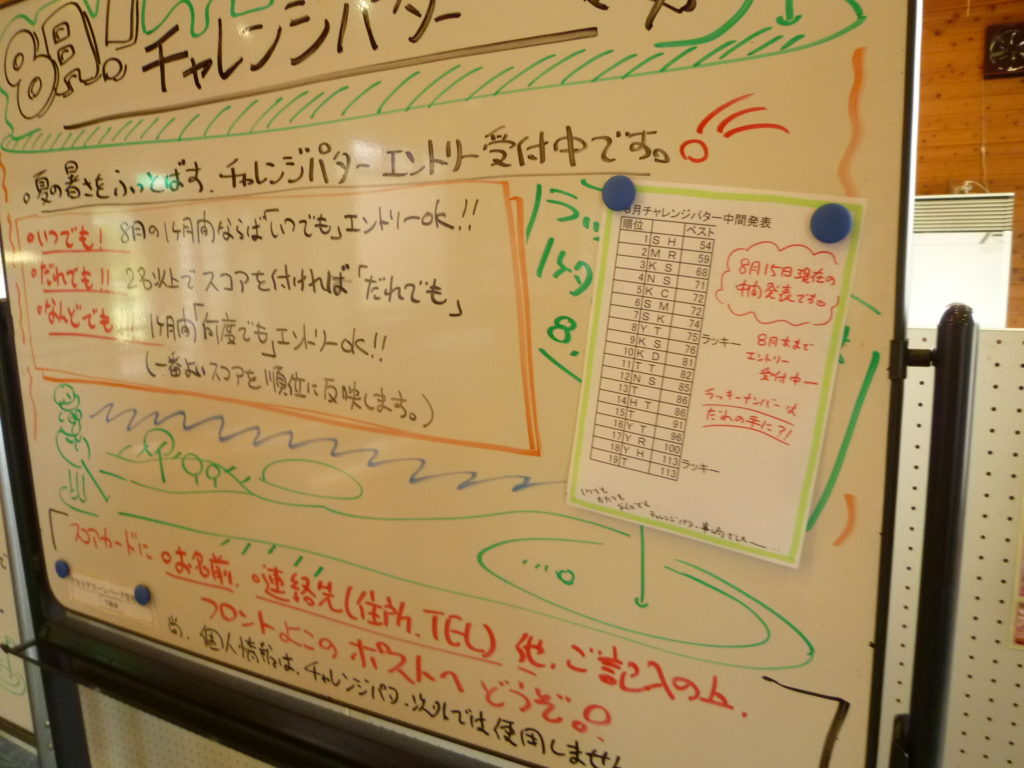 8月!
チャレンジパター
夏の暑さをふっとばす、チャレンジパターエントリー受付中です。
いつでも! 8月の1ヶ月間ならば「いつでも」エントリーok!!
だれでも!! 2名以上でスコアを付ければ「だれでも」
なんどでも 1ヶ月間「何度でも」エントリーok!!
(一番よいスコアを順位に反映します。)
ラッ
8.
8月チャレンジパター中間発表
順位 ベスト
1 S H 54
2 M R 59
3 K S 68
4 N S 71
5 K C 72
6 S M 72
7 S K 74
8 Y T 75 ラッキー
9 K S 76
10 K D 81
11 T T 82
12 N S 85
13 T 86
14 H T 86
15 T 91
16 Y T 96
17 Y R 100
18 Y H 113 ラッキー
19 T 113
8月15日現在の
中間発表です。
8月末まで
エントリー
受付中ー
ラッキーナンバーは
だれの手に?!
いつでも
だれでも
なんどでも
チャレンジパター
スコアカードに お名前、連絡先(住所、TEL) 他、ご記入の上、
フロントよこのポストへどうぞ。
尚、個人情報は、チャレンジパタ
では使用しません